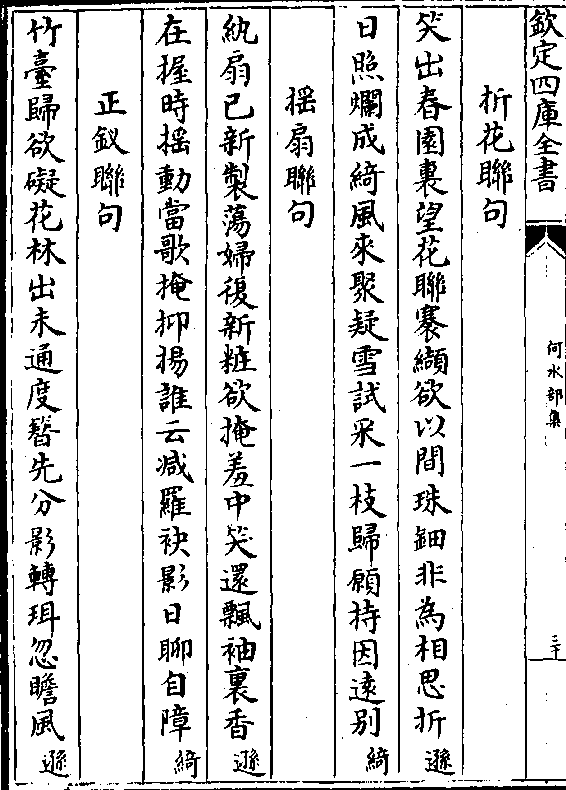 欽定四庫全書
何水部集
三十
折花聯句
笑出春園裏望花聯褰纈欲以間珠鈿非為相思折遜
日照爛成綺風來聚疑雪試采一枝歸願持因遠别綺
揺扇聯句
紈扇已新製蕩婦復新粧欲掩羞中笑還飄袖裏香遜
在握時揺動當歌掩抑揚誰云減羅袂影日聊自障綺
正釵聯句
竹臺歸欲礙花林出未通度簮先分影轉珥忽瞻風遜